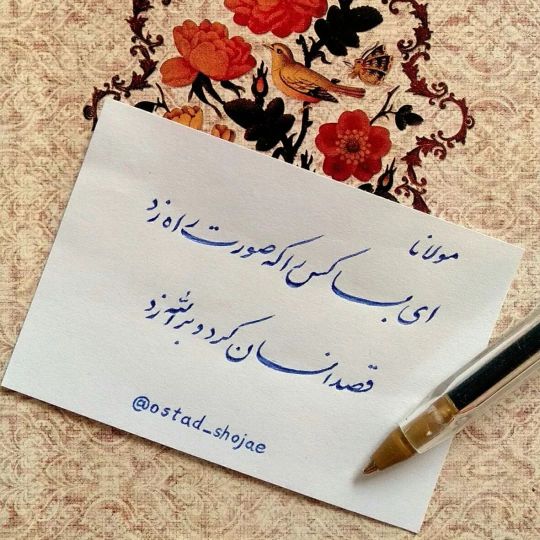 مولانا
ای بسا کس را که صورت راه زد
قصد انسان کرد و بر الله زد
@ostad_shojae